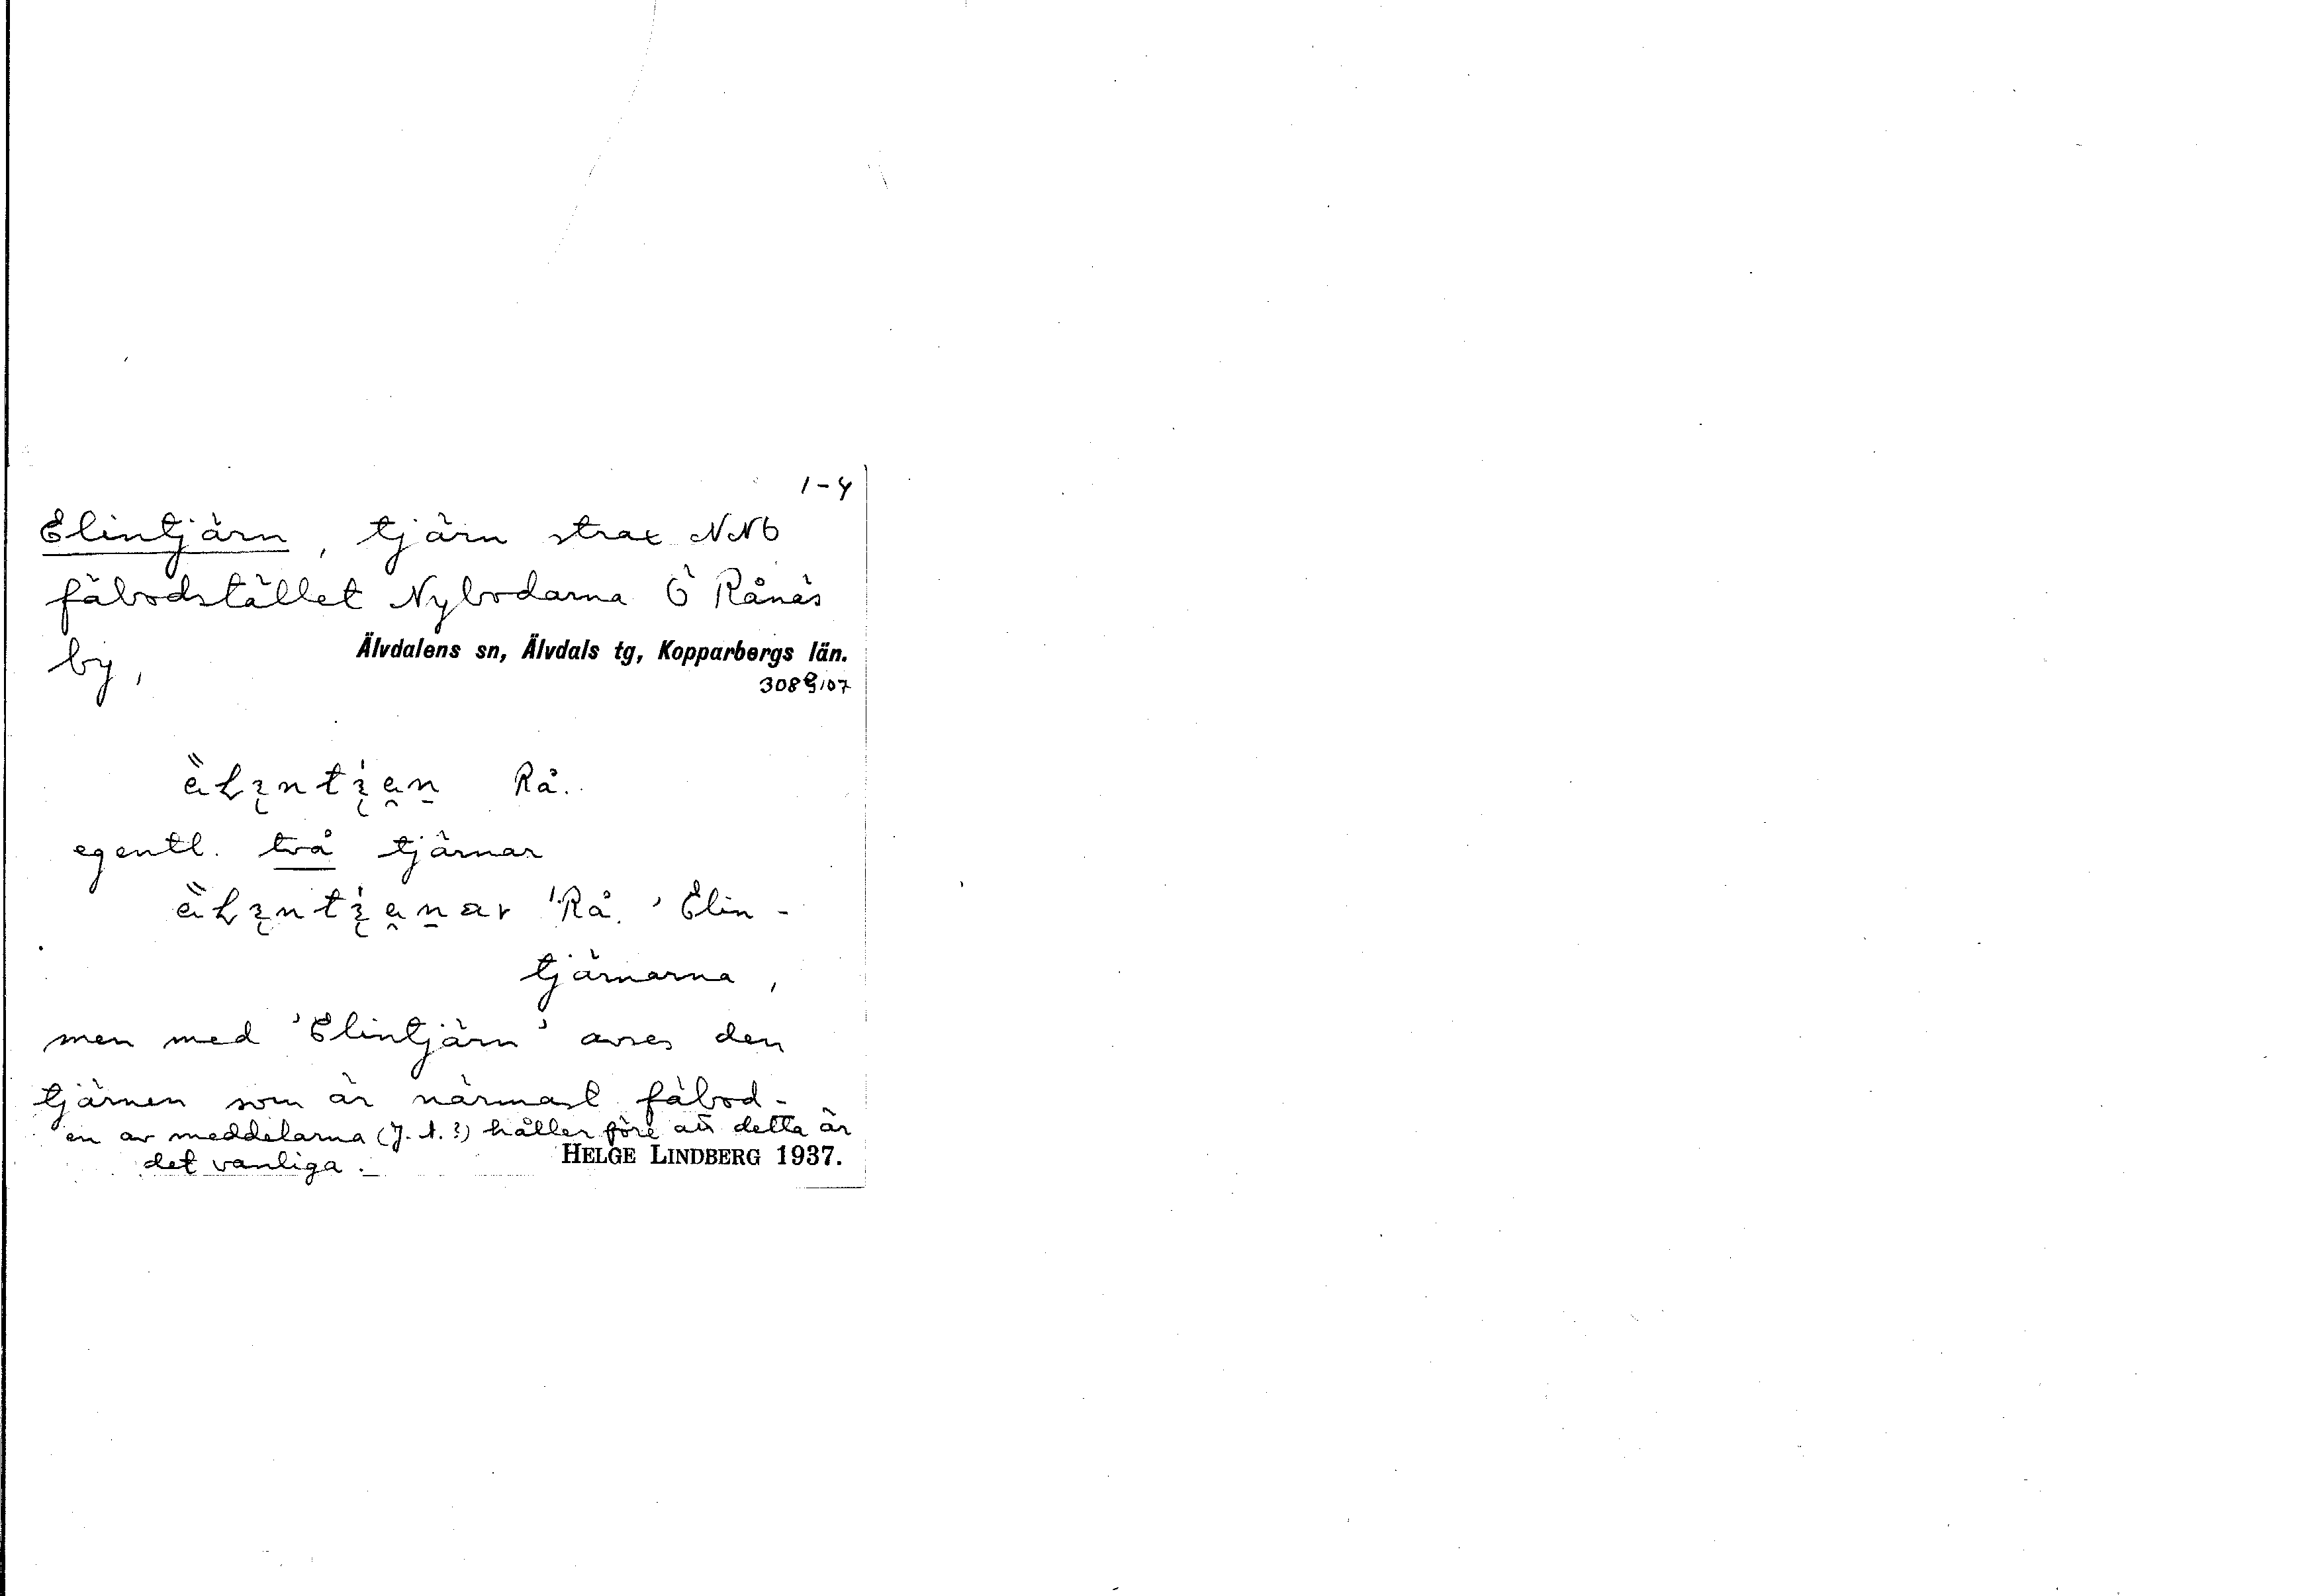 1-4
Elintjärn, tjärn strax NNÖ
fäbodstället Nybodarna Ö Rånäs
by,
Älvdalens sn, Älvdals tg, Kopparbergs län.
Rå.
egentl. två tjärnar
Rå. 'Elin-
tjärnarna,
men med 'Elintjärn' avses den
tjärnen som är närmast fäbod-
en av meddelarna (J. A. ?) håller före att detta är
det vanliga.
HELGE LINDBERG 1937.